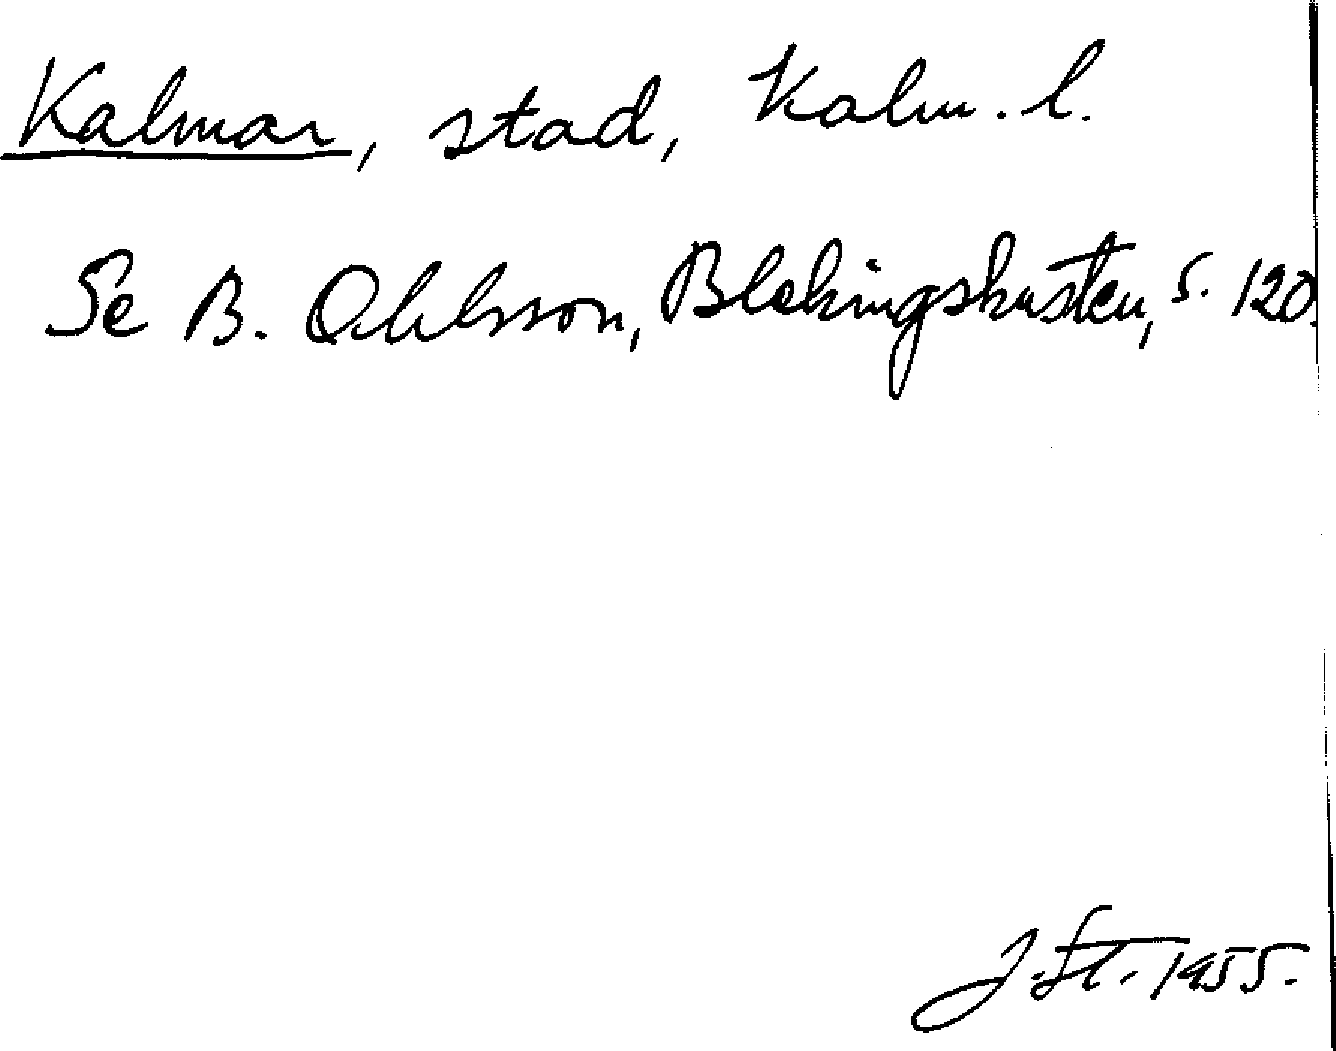 Kalmar, stad, Kalm. l.
Se B. Ohlsson, Blekingskusten, s. 120.
J. St. 1955.